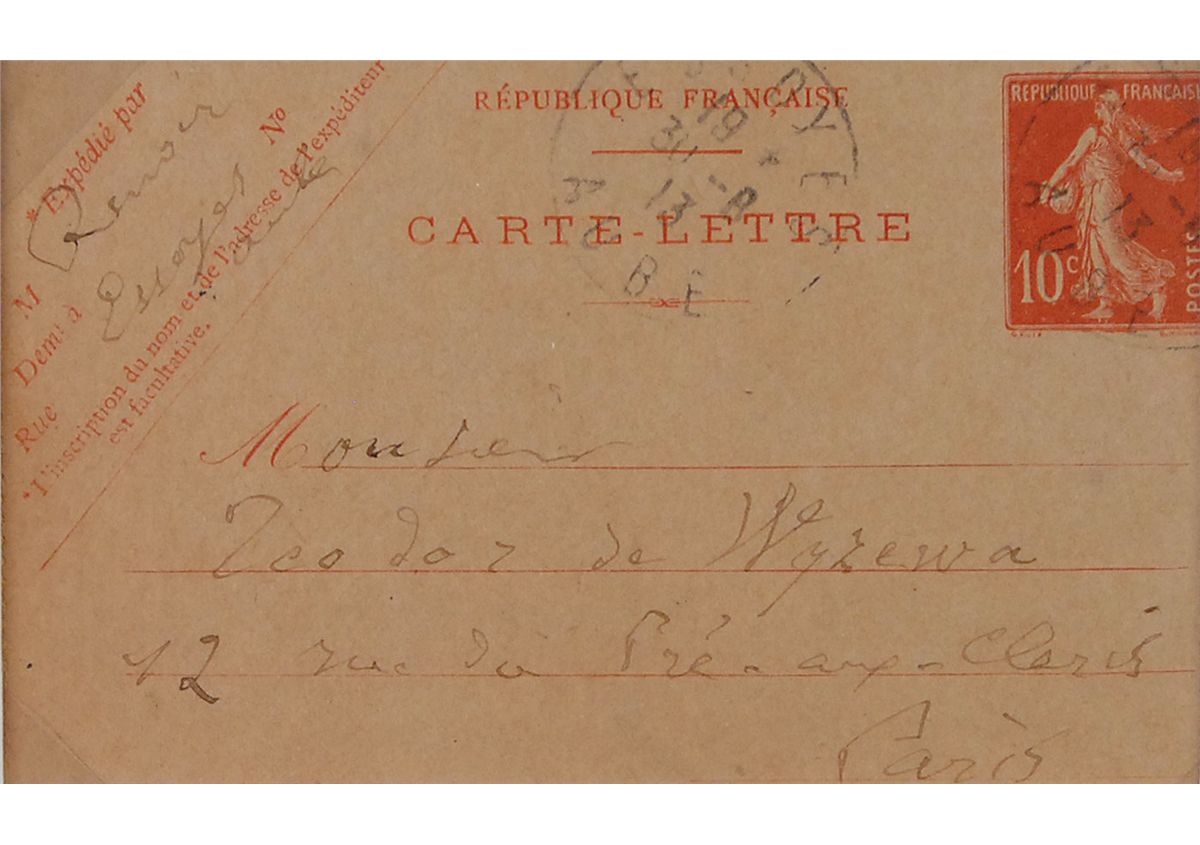 RÉPUBLIQUE FRANÇAISE
CARTE-LETTRE
RÉPUBLIQUE FRANÇAISE
10c
POSTES
* Expédié par
M Renoir
Demt à Essoyes
Rue Nº
Aube
*L'inscription du nom et de l'adresse de l'expéditeur
est facultative.
ESSOYES
19
30 -8
13
AUBE
Monsieur
Teodor de Wyzewa
12 rue du Pré-aux-Clercs
Paris